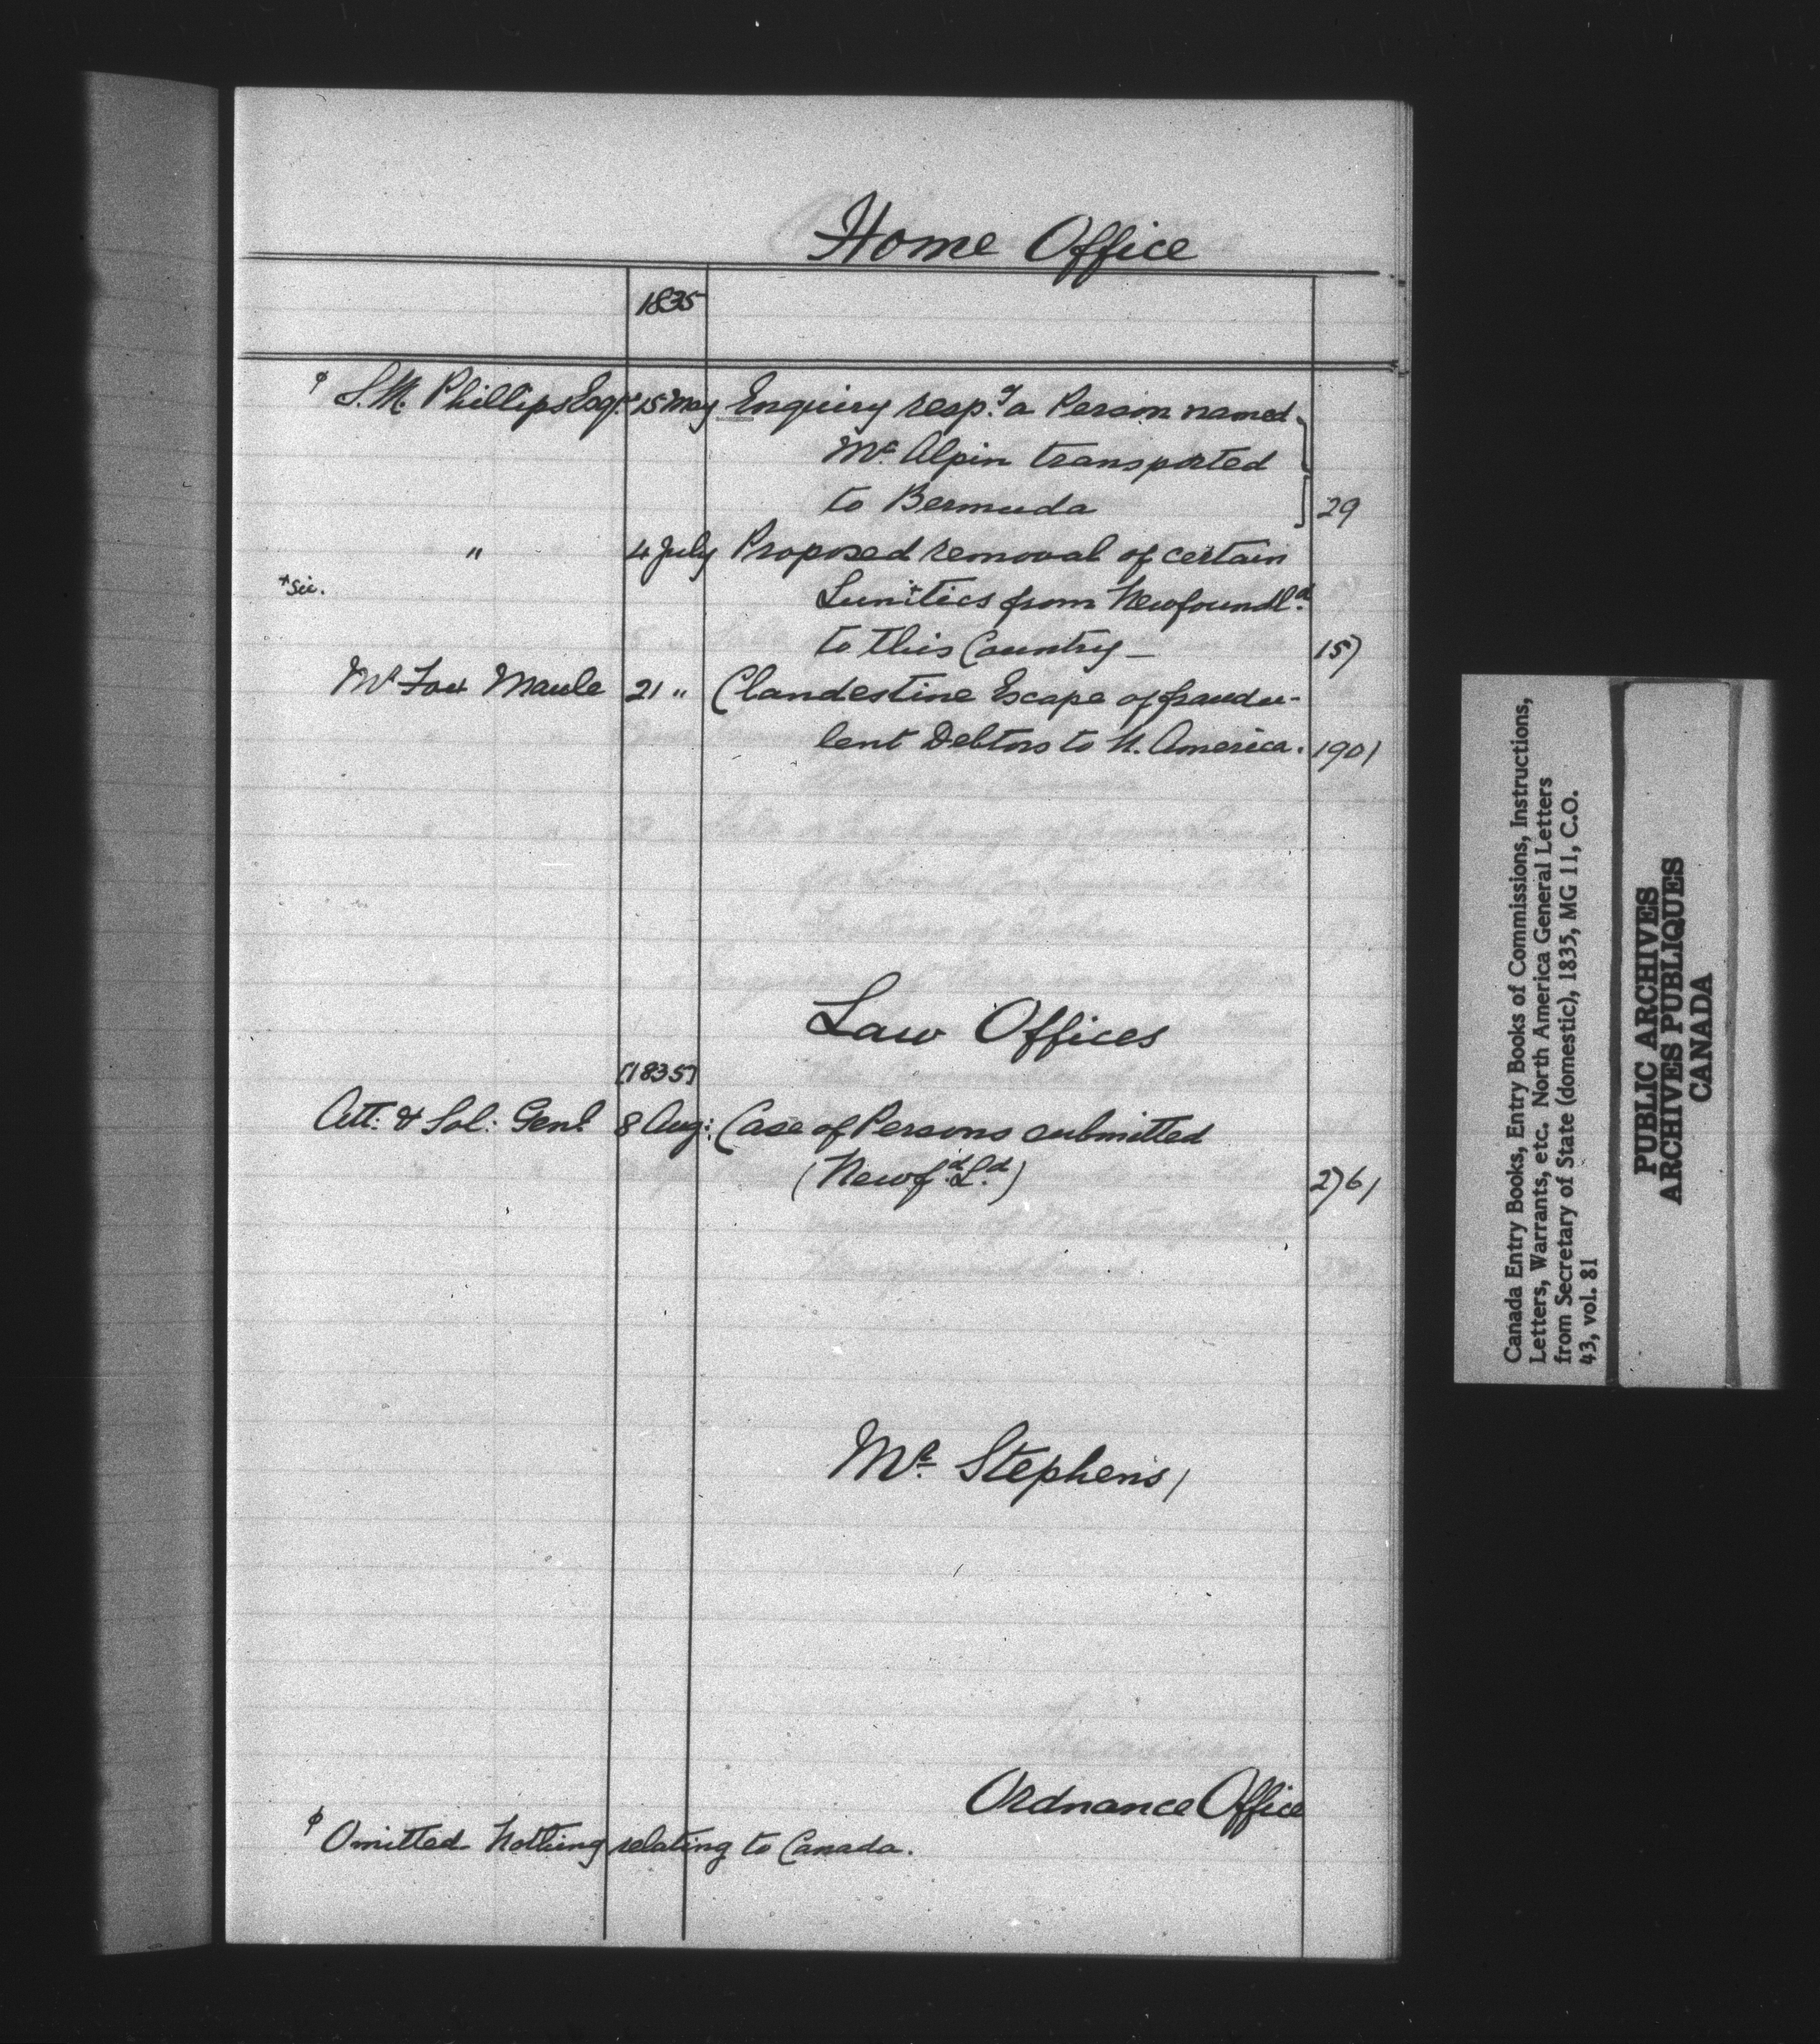 Home Office
1835
φ S.M. Phillips Esqre 15 May Enquiry respg a Person named
Mc Alpin transported
to Bermuda 29
" 4 July Proposed removal of certain
+Sic. Lun+itics from Newfoundld
to this Country — 157
Mr Fox Maule 21 " Clandestine Escape of fraudu-
lent Debtors to N. America. 190/
Law Offices
[1835]
Att: & Sol: Genl 8 Aug: Case of Persons submitted
(Newfd Ld) 276/
Mr Stephens/
Ordnance Office
φ Omitted Nothing relating to Canada.
Canada Entry Books, Entry Books of Commissions, Instructions,
Letters, Warrants, etc. North America General Letters
from Secretary of State (domestic), 1835, MG 11, C.O.
43, vol. 81
PUBLIC ARCHIVES
ARCHIVES PUBLIQUES
CANADA